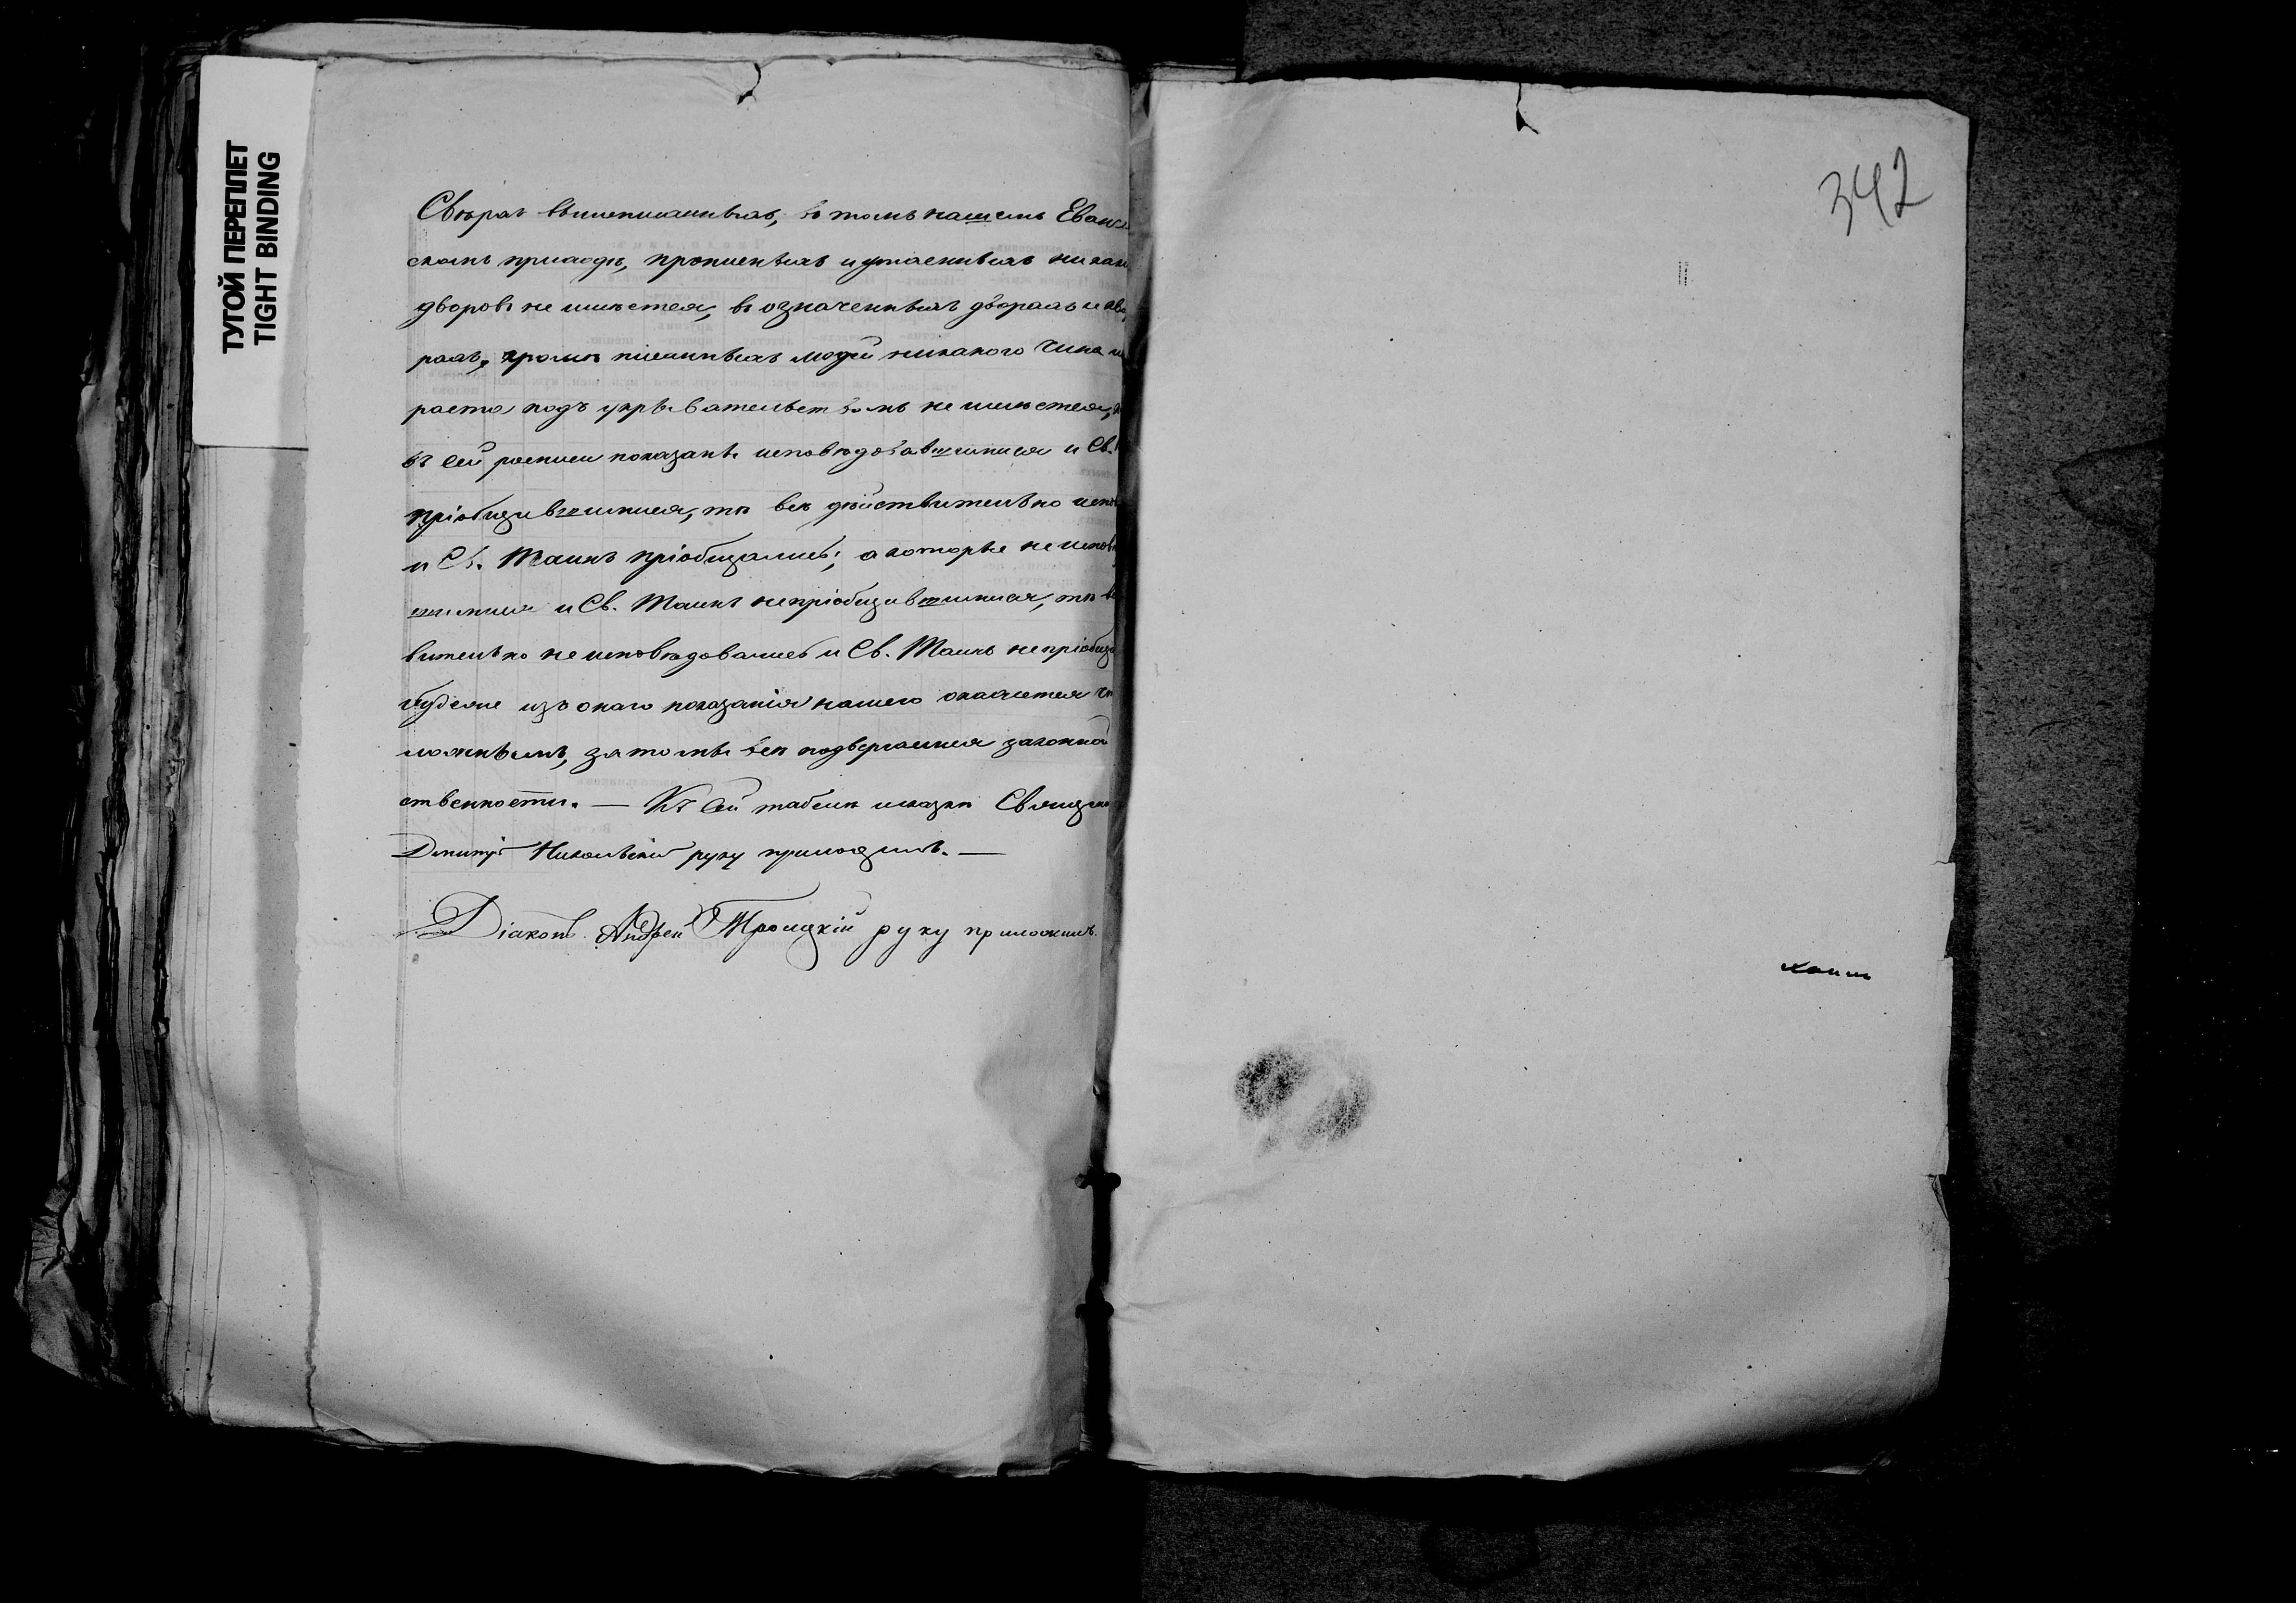 ТУГОЙ ПЕРЕПЛЕТ
TIGHT BINDING
342
Сверхъ вышеписанныхъ, въ томъ нашемъ
скомъ приходѣ, прописныхъ и утаенныхъ никак
дворовъ не имѣется, въ означенныхъ дворахъ и
рахъ, кромѣ писанныхъ людей никакого чина и
раста подъ укрывательствомъ не имѣется,
въ сей росписи показаны исповѣдовавшимися и Св.
пріобщившимися, тѣ всѣ дѣйствительно испов
и Св. Таинъ пріобщались; а которые не исповѣ
шимися и Св. Таинъ непріобщившимися, тѣ
вительно не исповѣдовались и Св. Таинъ непріобща
буде же изъ онаго показанія нашего окажется
ложнымъ, за то мы всѣ подвергаемся законной
ственности. — Къ сей табели и сказкѣ Священ
Дмитрій Никольскій руку приложилъ. —
Діаконъ Андрей Троицкій руку приложилъ.